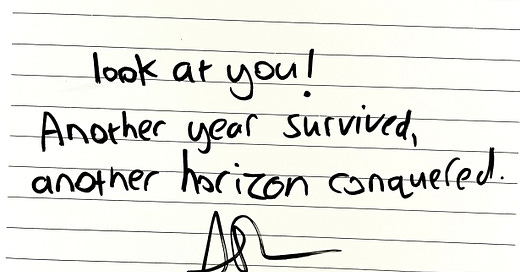 look at you!
Another year survived,
another horizon conquered.